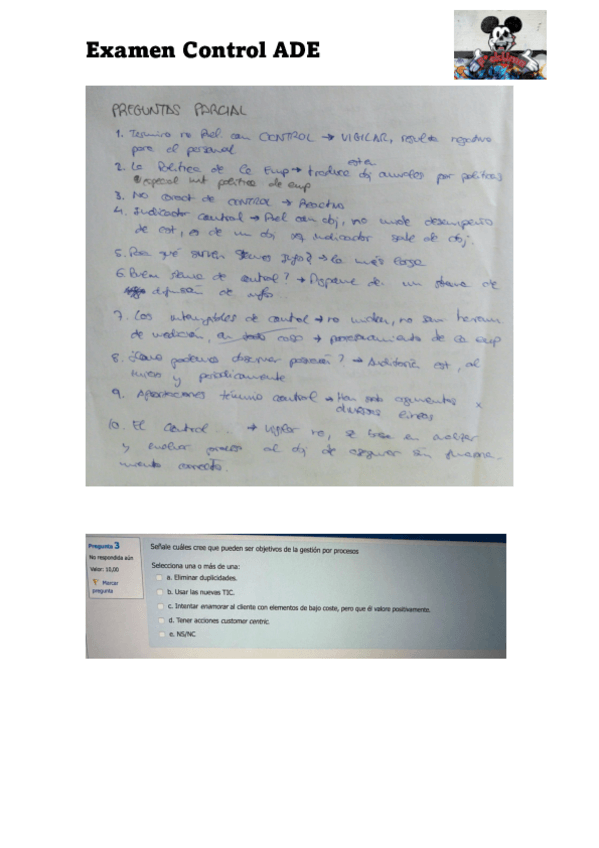 Examen Control ADE
PREGUNTAS PARCIAL
1. Termino no Rel con CONTROL → VIGILAR, resulta negativo
para el personal
2. La Politica de la Emp → traduce obj anuales por politicas
esta
especial int politica de emp
3. No caract de CONTROL → Reactivo
4. Indicador control → Rel con obj, no mide desempeño
de est, es de un obj indicador sale de obj.
5. Para qué sirven Stemas Info? → La más larga
6. Buen stema de control? → Dispone de un stema de
difusión de info...
7. Los intangibles de control → no miden, no son
de medición, en todo caso → de la emp
8. ¿Como podemos disernar ? → Auditoría est, al
inicio y periodicamente
9. Aportaciones término control → Han sido argumentos
diversas lineas
10. El control... → vigilar no, se basa en analizar
y evaluar proceso al obj de asegurar un funciona-
miento correcto.
Pregunta 3
No respondida aún
Valor: 10,00
Marcar
pregunta
Señale cuáles cree que pueden ser objetivos de la gestión por procesos
Selecciona una o más de una:
a. Eliminar duplicidades.
b. Usar las nuevas TIC.
c. Intentar enamorar al cliente con elementos de bajo coste, pero que él valore positivamente.
d. Tener acciones customer centric.
e. NS/NC